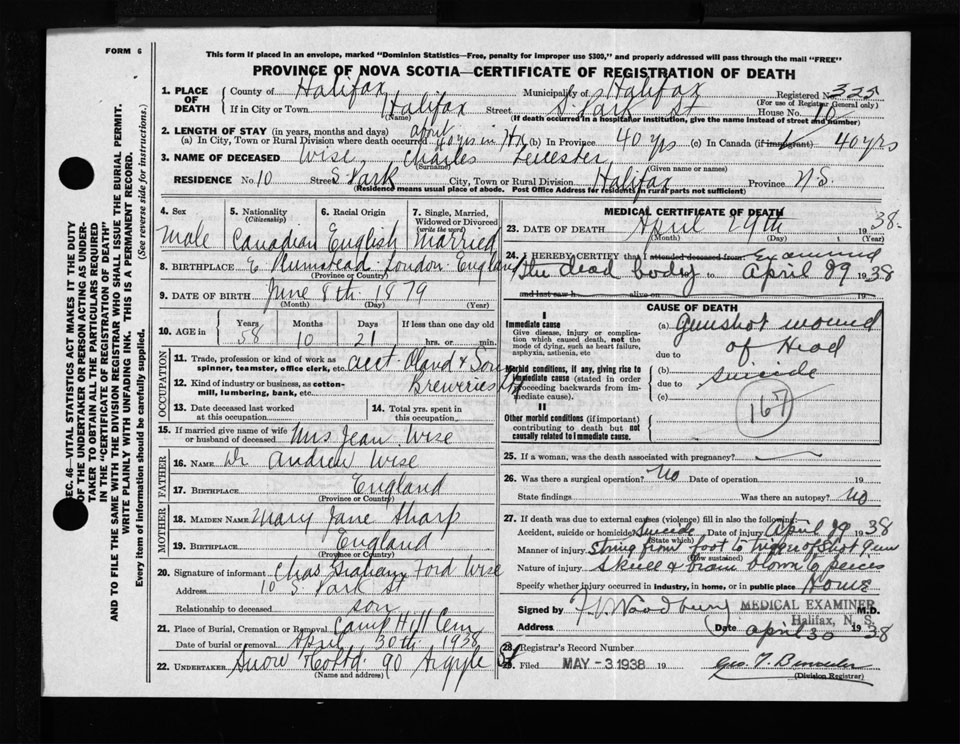 FORM 6
This form if placed in an envelope, marked "Dominion Statistics—Free, penalty for improper use $300," and properly addressed will pass through the mail "FREE"
PROVINCE OF NOVA SCOTIA—CERTIFICATE OF REGISTRATION OF DEATH
SEC. 46—VITAL STATISTICS ACT MAKES IT THE DUTY
OF THE UNDERTAKER OR PERSON ACTING AS UNDER-
TAKER TO OBTAIN ALL THE PARTICULARS REQUIRED
IN THE "CERTIFICATE OF REGISTRATION OF DEATH"
AND TO FILE THE SAME WITH THE DIVISION REGISTRAR WHO SHALL ISSUE THE BURIAL PERMIT.
WRITE PLAINLY WITH UNFADING INK. THIS IS A PERMANENT RECORD.
Every item of information should be carefully supplied. (See reverse side for instructions.)
1. PLACE OF DEATH County of Halifax Municipality of Halifax Registered No. 325
(For use of Registrar General only)
If in City or Town Halifax Street S. Park St House No. 10
(Name) (If death occurred in a hospital or institution, give the name instead of street and number)
2. LENGTH OF STAY (in years, months and days)
(a) In City, Town or Rural Division where death occurred 40 yrs in Hx (b) In Province 40 yrs (c) In Canada (if immigrant) 40 yrs
3. NAME OF DECEASED Wise, Charles Leicester
(Surname) (Given name or names)
RESIDENCE No. 10 Street S Park City, Town or Rural Division Halifax Province N.S.
(Residence means usual place of abode. Post Office Address for residents in rural parts not sufficient)
4. Sex Male
5. Nationality (Citizenship) Canadian
6. Racial Origin English
7. Single, Married, Widowed or Divorced (write the word) Married
8. BIRTHPLACE E Plumstead London England
(Province or Country)
9. DATE OF BIRTH June 8th 1879
(Month) (Day) (Year)
10. AGE in Years Months Days If less than one day
58 10 21 hrs. or min.
OCCUPATION
11. Trade, profession or kind of work as spinner, teamster, office clerk, etc. acct. Oland & Son
12. Kind of industry or business, as cotton-mill, lumbering, bank, etc. Breweries
13. Date deceased last worked at this occupation
14. Total yrs. spent in this occupation
15. If married give name of wife or husband of deceased Mrs Jean Wise
FATHER
16. NAME Dr Andrew Wise
17. BIRTHPLACE England
(Province or Country)
MOTHER
18. MAIDEN NAME Mary Jane Sharp
19. BIRTHPLACE England
(Province or Country)
20. Signature of informant Chas Graham Ford Wise
Address 10 S Park St
Relationship to deceased son
21. Place of Burial, Cremation or Removal Camp Hill Cem
Date of burial or removal April 30th 1938
22. UNDERTAKER Snow & Co Ltd 90 Argyle St
(Name and address)
MEDICAL CERTIFICATE OF DEATH
23. DATE OF DEATH April 29th 1938
(Month) (Day) (Year)
24. I HEREBY CERTIFY that I attended deceased from Examined
the dead body to April 29 1938
and last saw h alive on 19
CAUSE OF DEATH
I
Immediate cause
Give disease, injury or complication which caused death, not the mode of dying, such as heart failure, asphyxia, asthenia, etc
(a) Gunshot wound
due to of Head
Morbid conditions, if any, giving rise to immediate cause (stated in order of proceeding backwards from immediate cause).
(b) suicide
due to
(c)
167
II
Other morbid conditions (if important) contributing to death but not causally related to immediate cause.
25. If a woman, was the death associated with pregnancy?
26. Was there a surgical operation? No Date of operation 19
State findings Was there an autopsy? No
27. If death was due to external causes (violence) fill in also the following:
Accident, suicide or homicide Suicide Date of injury April 29 1938
(State which)
Manner of injury String from foot to trigger of Shot Gun
(How sustained)
Nature of injury Skull & brain blown to pieces
Specify whether injury occurred in industry, in home, or in public place Home
Signed by F V Woodbury MEDICAL EXAMINER M.D.
Halifax, N. S.
Address Date April 30 1938
28. Registrar's Record Number
29. Filed MAY -3 1938 19
(Division Registrar)